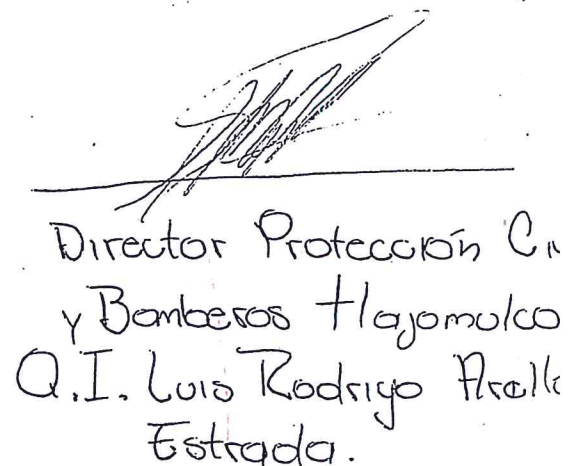 Director Protección C
y Bomberos tlajomulco
Q.I. Luis Rodrigo Arell
Estrada.